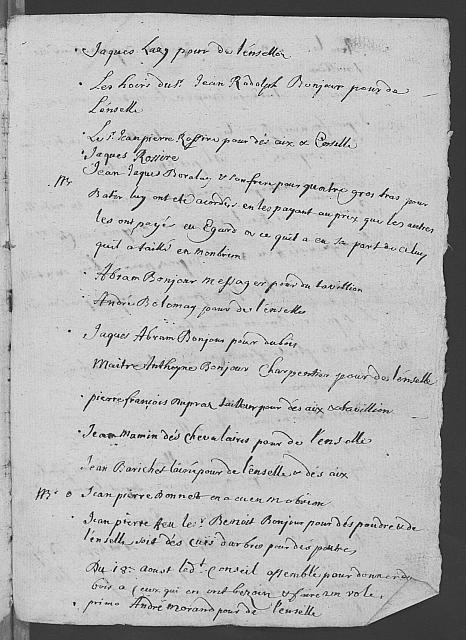 Jaques Lecy pour de l'enselle
Les hoirs du Sr. Jean Rodolph Bonjour pour de
L'enselle
Le Sr. Jean pierre Rossire pour des aix & Enselle
Jaques Rossire
Jean Jaques & son frere pour quatre gros tras pour
ont eté acordés en les payant au prix que les autres
les ont payé eu Egard a ce quil a eu sa part de celuy
quil a taillé en
Abram Bonjour messager pour du tavillion
André Bolomay pour de l'enselle
Jaques Abram Bonjour pour du bois
Maitre Anthoyne Bonjour Charpentier pour de l'enselle
pierre françois Dupraz tailleur pour des aix & tavillion
Jean Mamin dés Chevalaires pour de l'enselle
Jean Barichet pour de l'enselle & dés aix
Jean pierre Bonnet en a eu en
Jean pierre feu le Sr. Benoit Bonjour pour dés poudre & de
l'enselle soit des pour des poutres
Du 18e. aoust led.t Conseil assemblé pour donner du
bois a Ceux qui en ont besoin & faire un role,
primo André morand pour de l'enselle